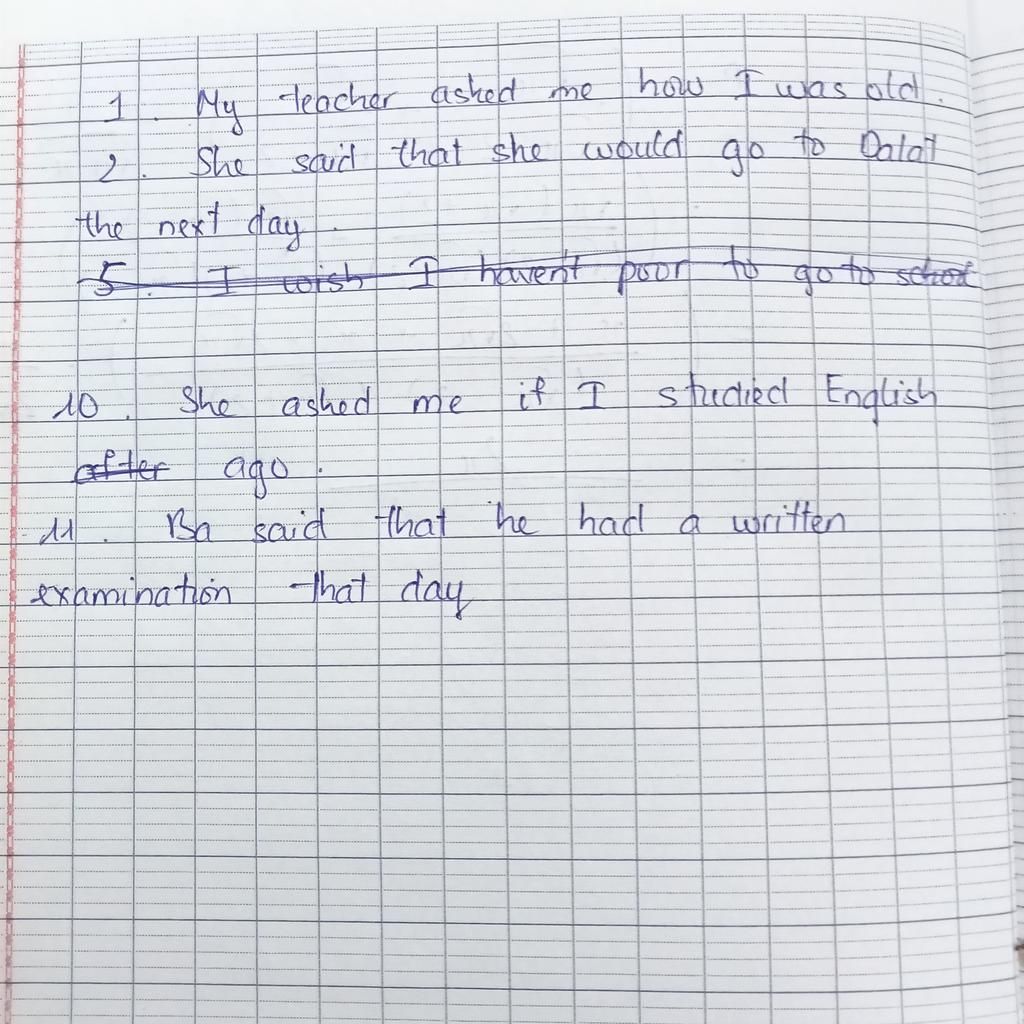 1. My teacher asked me how I was old.
2. She said that she would go to Dalat
the next day.
5. I wish I haven't poor to go to school
10. She asked me if I studied English
after ago.
11. Ba said that he had a written
examination that day